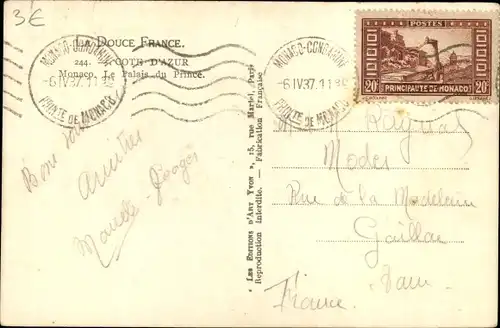 3€
LA DOUCE FRANCE.
244. COTE D'AZUR
Monaco. Le Palais du Prince.
MONACO-CONDAMINE
-6 IV 37. 11
PRINTE DE MONACO
MONACO-CONDAMINE
-6 IV 37. 11
PRINTE DE MONACO
POSTES
20c 20c
PRINCIPAUTÉ DE MONACO
"LES EDITIONS D'ART YVON", 15, rue Martel, Paris
Reproduction interdite. — Fabrication Française
Modes
Rue de la Madeleine
Gaillac
Tarn
France